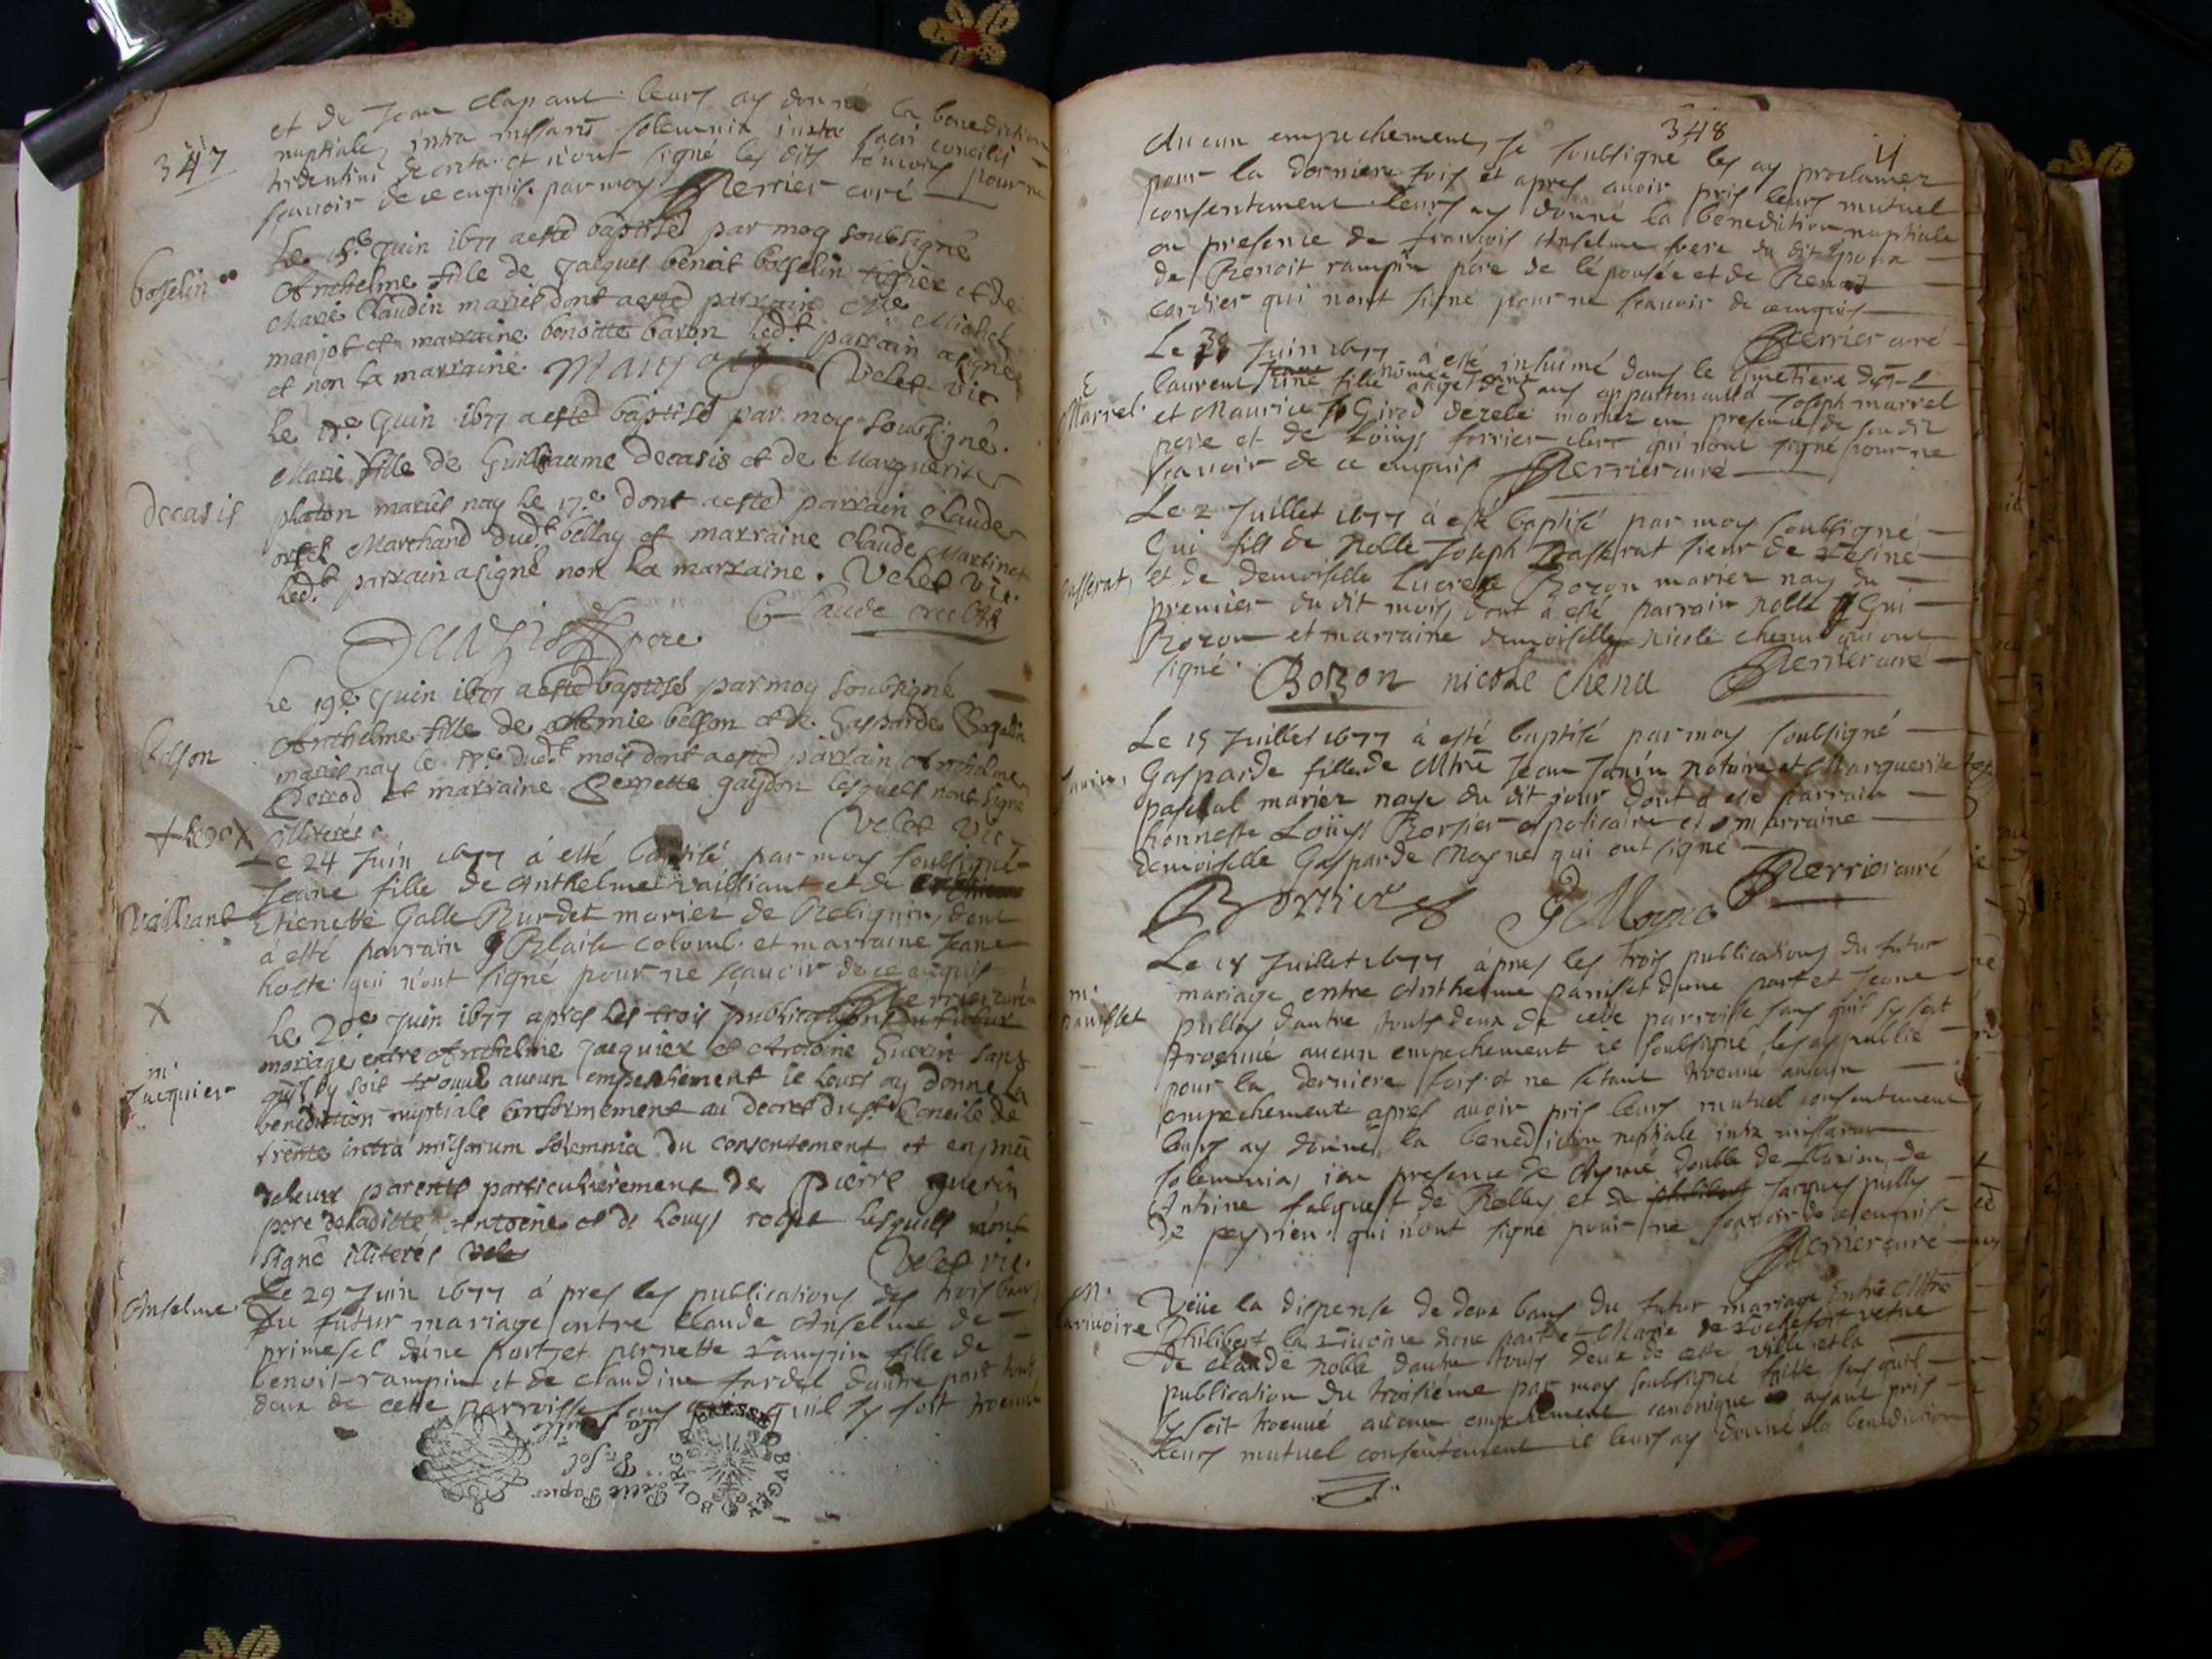 347
et de Jean Clapant leurs ay donné la benediction
nuptiale, intra missarū solemnia iuxta sacri concilii
tridentini decreta et n'ont signé les dits témoins pour ne
sçavoir de ce enquis par moy. Perrier curé
Le 15e Juin 1677 a esté baptisé par moy soubsigné
bosselin
Anthelme fille de Jacques benoit bosselin et de
Marie Claudin mariés dont a esté parrain Me Michel
manjot et marraine benoitte baron led.t parrain a signé
et non la marraine. Manjot Velet vic
Le 18e Juin 1677 a esté baptisé par moy soubsigné.
Marie fille de Guillaume decasis et de Marguerite
decasis
platon mariés nay le 17e dont a esté parrain claude
orcel Marchand dud.t bellay et marraine claude Martinet
led.t parrain a signé non la marraine. Velet vic.
Claude orcel
pere
Le 19e Juin 1677 a esté baptisé par moy soubsigné
Anthelme fille de Themie besson et de Gasparde
besson
mariés nay le 18e dud.t mois dont a esté parrain Anthelme
Perrod et marraine Pernette gaydon lesquels n'ont signé
illiterés Velet vic
Le 24 Juin 1677 à esté baptisé par moy soubsigné
Jeane fille de Anthelme vailliant et de
vailliant
thienette Galle Burdet mariez de Beliguin, dont
à esté parrain Blaise colomb et marraine Jeane
hoste qui n'ont signé pour ne sçavoir de ce enquis
Perrier curé
X
Le 20e Juin 1677 apres les trois publications du futur
mariage entre Anthelme Jacquier et Antoine Guerin sans
m.
Jacquier
qu'il sy soit trouvé aucun empechement ie leurs ay donné la
benediction nuptiale conformement au decret du st Concile de
trente intra missarum solemnia du consentement et en
de leurs parents particulierement de pierre guerin
pere de ladicte Antoine et de Louys rosset lesquels n'ont
signé illiterés
Velet vic.
Le 29 Juin 1677 à pres les publications des trois bans
Anselme
Du futur mariage entre Claude Anselme de
primesel d'une part, et pernette rampin fille de
benoit rampin et de claudine fardel dautre part touts
deux de cette parroisse sans quil sy soit trouvé
348
Aucun empechement, Je soubsigné les ay proclamez
pour la derniere fois et apres avoir pris leurs mutuel
consentement leurs ay donné la benediction nuptiale
en presence de françois Anselme frere du dit époux
de Benoit rampin père de lépousée et de Benoit
cordier qui nont signé pour ne scavoir de ce enquis
Perrier curé
Le 30 Juin 1677 à esté inhumé dans le cimetiere de st
E
Marrel.
laurent Jeane fille agée de ans appartenante à Joseph marrel
et Maurice Girod mariez en presence de son dit
pere et de Loüys ferrier clerc qui nont signé pour ne
scavoir de ce enquis Perrier curé
Le 2 Juillet 1677 à esté baptisé par moy soubsigné
Gui fils de Noble Joseph Passerat sieur de
passerat,
et de demoiselle Lucrece Bozon mariez nay du
premier du dit mois, dont à esté parrain noble Gui
Bozon et marraine demoiselle Nicole chenu qui ont
signé. Bozon nicole chenu Perrier curé
Le 15 Juillet 1677 à esté baptisé par moy soubsigné
Gasparde fille de Mtre Jean Janin notaire et Marguerite
Janin,
paschal mariez naye du dit jour dont à esté parrain
honneste Loüys Borsier apoticaire et marraine
demoiselle Gasparde Moyne qui ont signé
Perrier curé
G Moyne
Le 18 Juillet 1677 àpres les trois publications du futur
mariage entre Anthelme panisset d'une part et Jeane
m.
panisset
pullys dautre touts deux de cette parroisse sans quil sy soit
troeuué aucun empechement ie soubsigné les ay publié
pour la derniere fois et ne sétant troeuué aucun
empechement apres avoir pris leurs mutuel consentement
leurs ay donné la benediction nuptiale intra missarum
solemnia, en presence de Aymé double de
Antoine falquet de Belley et de Jacques pullys
de peyrieu qui n'ont signé pour ne scavoir de ce enquis
Perrier curé
m.
Veüe la dispense de deux bans du futur mariage entre Mtre
Philibert la d'une part et Marie de rochefort vefve
de claude noble dautre touts deux de cette ville et la
publication du troisiéme par moy soubsigné faitte sans quil
sy soit troeuué aucun empechement canonique ayant pris
leurs mutuel consentement ie leurs ay donné la benediction